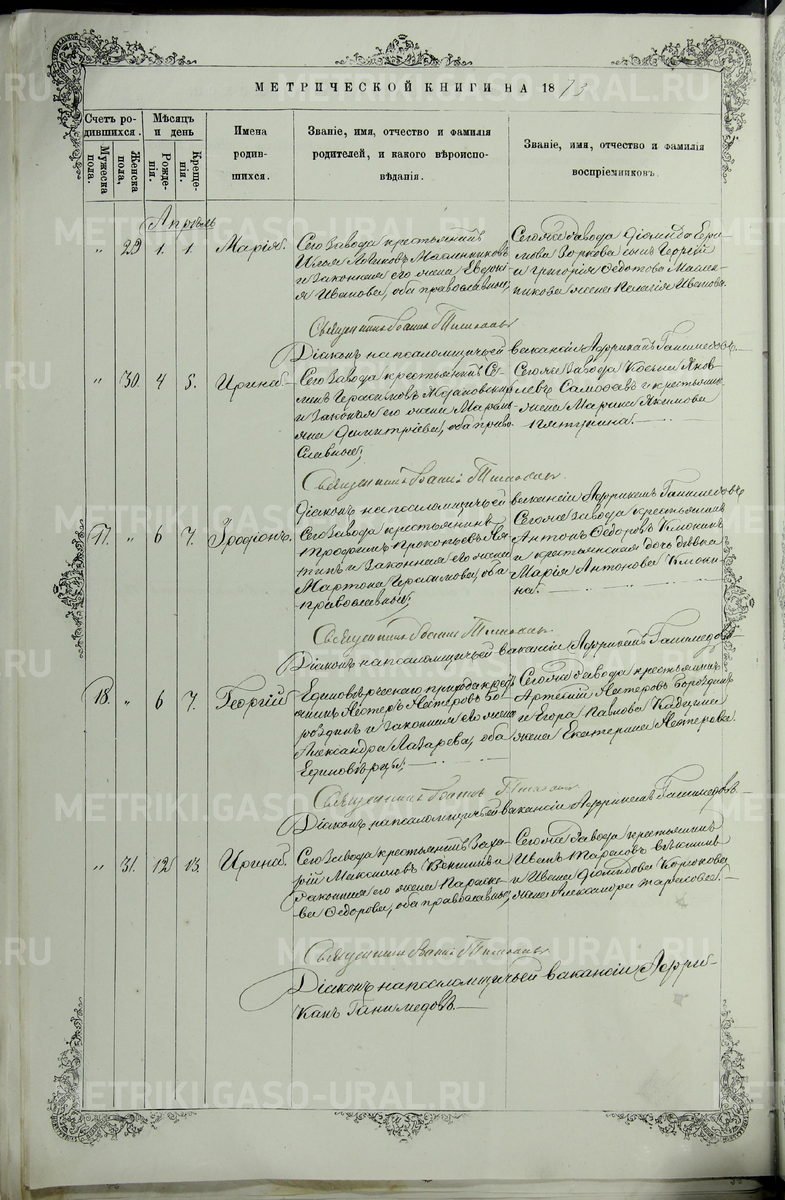 МЕТРИЧЕСКОЙ КНИГИ НА 1873
Счетъ ро-
дившихся.
Мужеска
пола.
Женска
пола,
Мѣсяцъ
и день
Рожде-
нія.
Креще-
нія.
Имена
родив-
шихся.
Званіе, имя, отчество и фамилія
родителей, и какого вѣроиспо-
вѣданія.
Званіе, имя, отчество и фамилія
воспріемниковъ.
Апрѣль
„ 29 1. 1. Марія.
Сего завода крестьянинъ
Илья Масленниковъ
и законная его жена
Иванова, оба православные,
Сегоже завода Діомида
Зоркова сынъ Георгій
и Григорія Ѳедотова Маслен-
никова жена Пелагія Иванова.
Священникъ Іоаннъ
Діаконъ на псаломщичьей вакансіи Африканъ Ганимедовъ.
„ 30. 4 5. Ирина.
Сего завода крестьянинъ Се-
менъ Герасимовъ Ждановскихъ
и законная его жена Маріам-
на Димитріева, оба право-
славные,
Сегоже завода Косьма Яков-
левъ и крестьян.
жена Марина Якимова
Пятунина.
Священникъ Іоаннъ
Діаконъ на псаломщичьей вакансіи Африканъ Ганимедовъ
17. „ 6 7. Іродіонъ.
Сего завода крестьянинъ
Трофимъ Прокопьевъ
и законная его жена
Матрона Герасимова, оба
православные,
Сегоже завода крестьянинъ
Антонъ Ѳедоровъ Клюкинъ
и крестьянская дочь дѣвка
Марія Антонова Клюки-
на.
Священникъ Іоаннъ
Діаконъ на псаломщичьей вакансіи Африканъ Ганимедовъ
18. „ 6 7. Георгій
Единовѣрческаго прихода
Нестеръ Нестеровъ Бо-
роздинъ и законная его жена
Александра Лазарева, оба
Единовѣрцы,
Сегоже завода крестьянинъ
Артемій Нестеровъ Бороздинъ
и Егора Павлова Кадцина
жена Екатерина Нестерова.
Священникъ Іоаннъ
Діаконъ на псаломщичьей вакансіи Африканъ Ганимедовъ
„ 31. 12 13. Ирина.
Сего завода крестьянинъ Заха-
рій Максимовъ Векшинъ и
законная его жена Параске-
ва Ѳедорова, оба православные,
Сегоже завода крестьянинъ
Иванъ Тарасовъ Векшинъ
и Ивана Діомидова Корюкова
жена Александра Тарасова.
Священникъ Іоаннъ
Діаконъ на псаломщичьей вакансіи Афри-
канъ Ганимедовъ.
METRIKI.GASO-URAL.RU